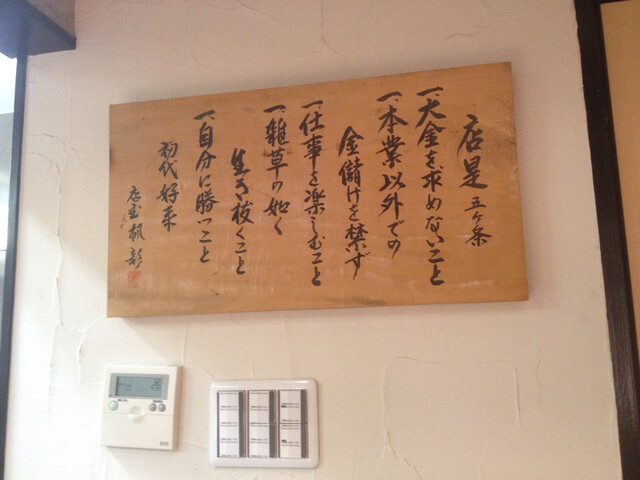 店是 五ヶ条
一、大金を求めないこと
一、本業以外での
金儲けを禁ず
一、仕事を楽しむこと
一、雑草の如く
生き抜くこと
一、自分に勝つこと
初代 好来
店主 楓彰
26